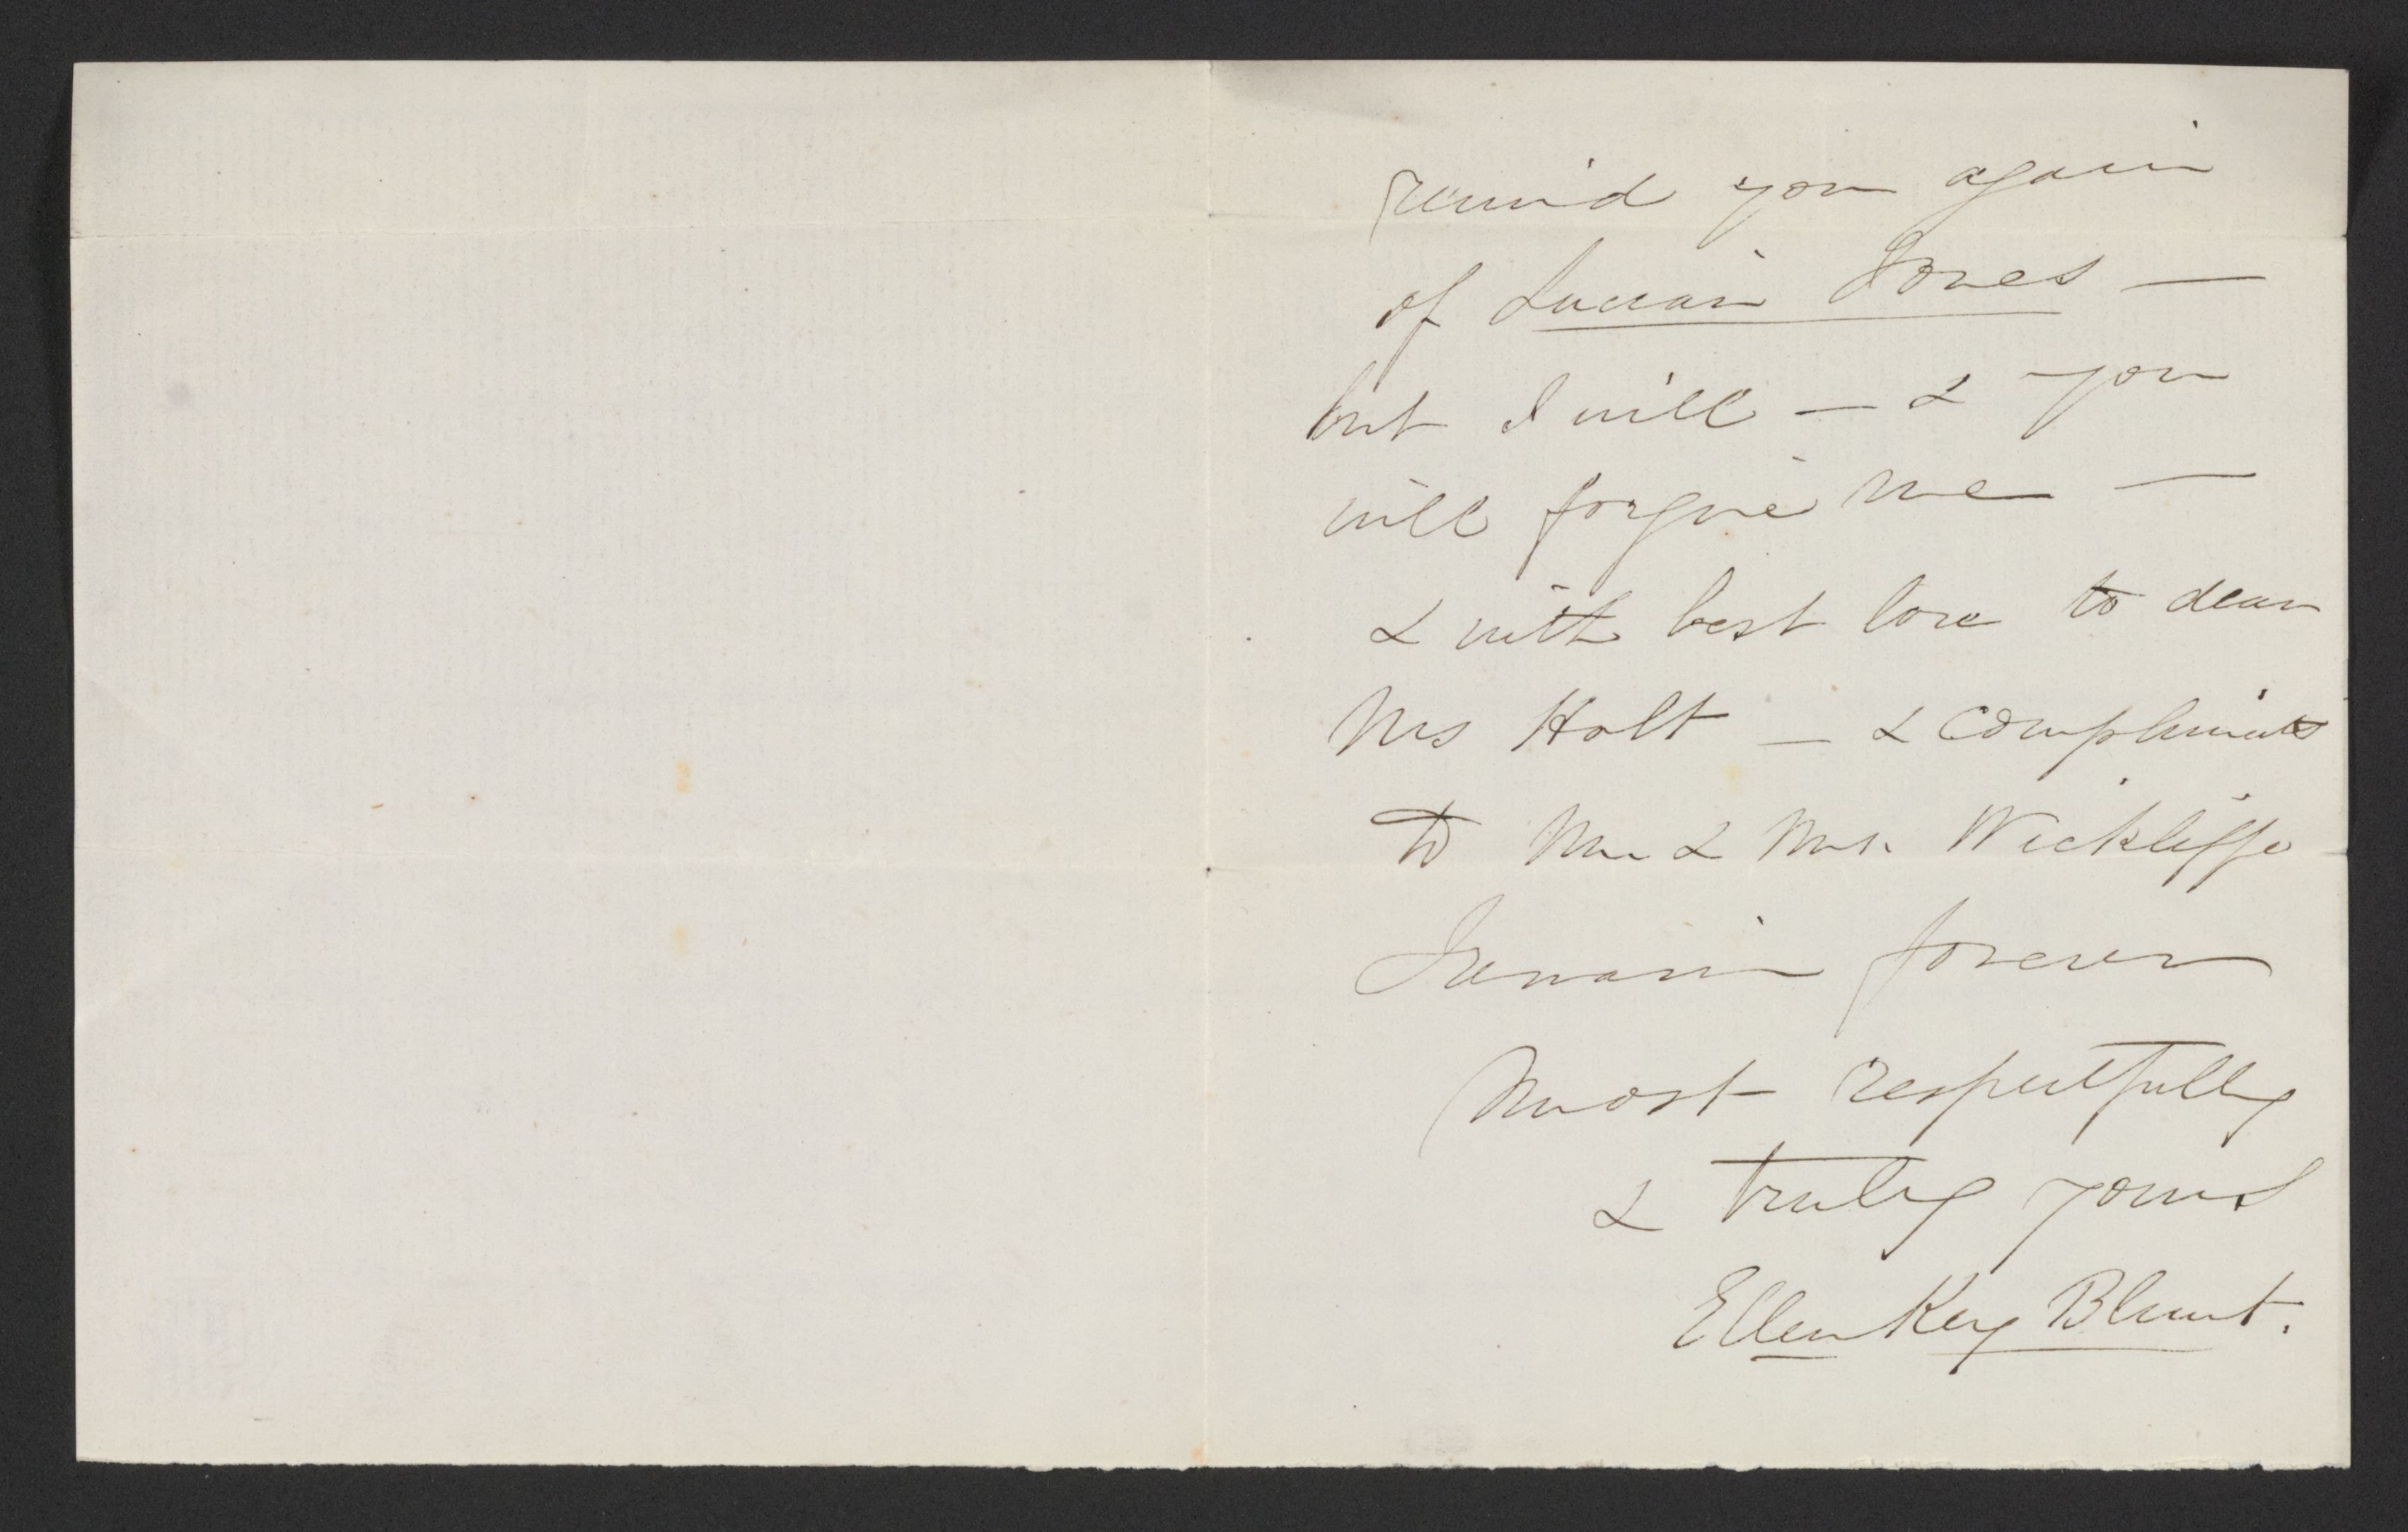 remind you again
of Lucian Jones —
but I will — & you
will forgive me —
& with best love to dear
Mrs Holt — & compliments
to Mr & Mrs. Wickliffe
I remain forever
most respectfully
& truly yours
Ellen Key Blunt.